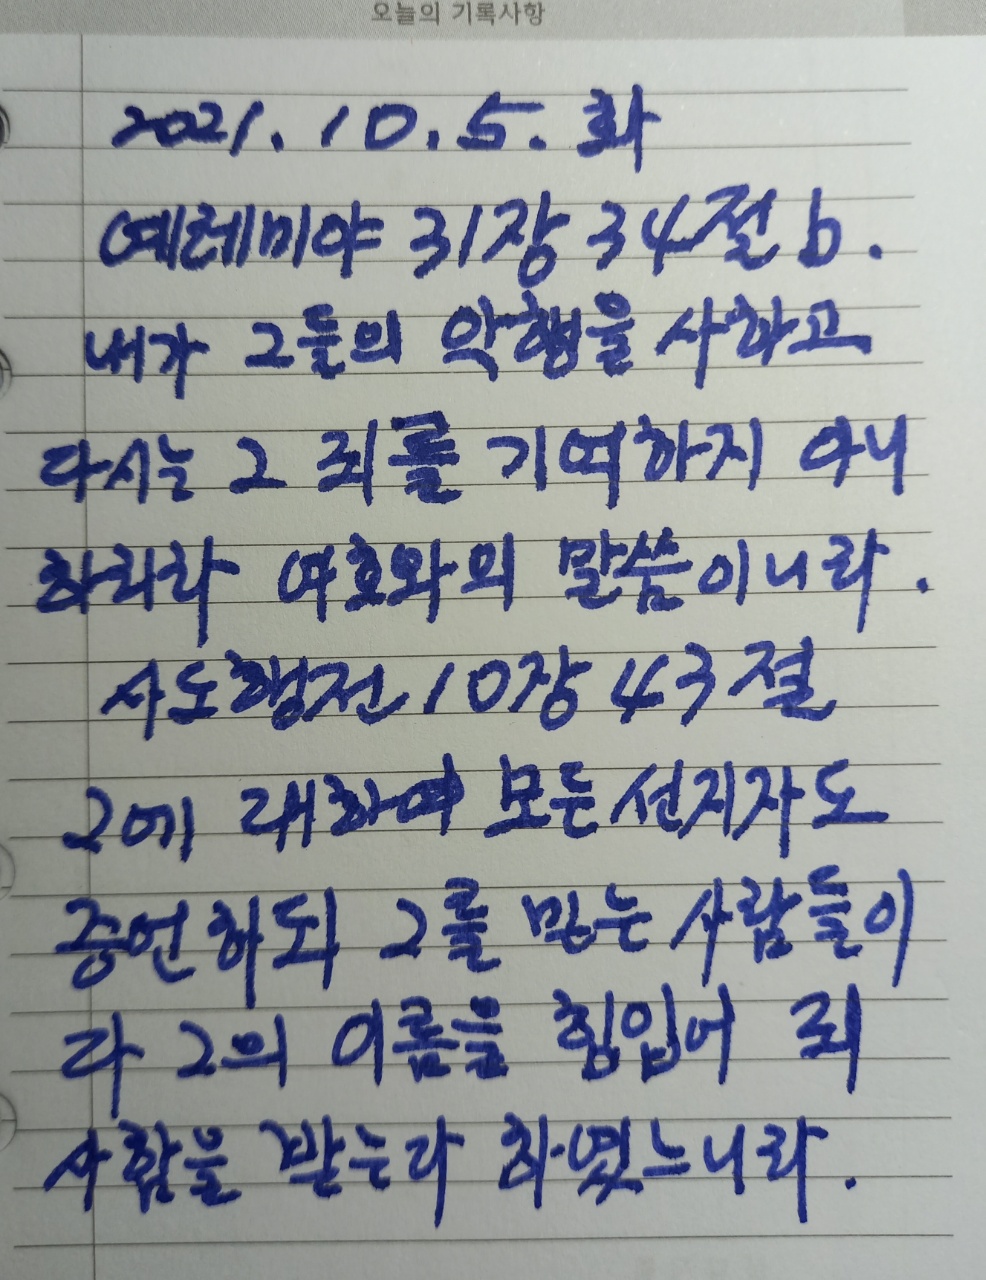 오늘의 기록사항
2021. 10. 5. 화
예레미야 31장 34절 b.
내가 그들의 악행을 사하고
다시는 그 죄를 기억하지 아니
하리라 여호와의 말씀이니라.
사도행전 10장 43절
그에 대하여 모든 선지자도
증언하되 그를 믿는 사람들이
다 그의 이름을 힘입어 죄
사함을 받는다 하였느니라.